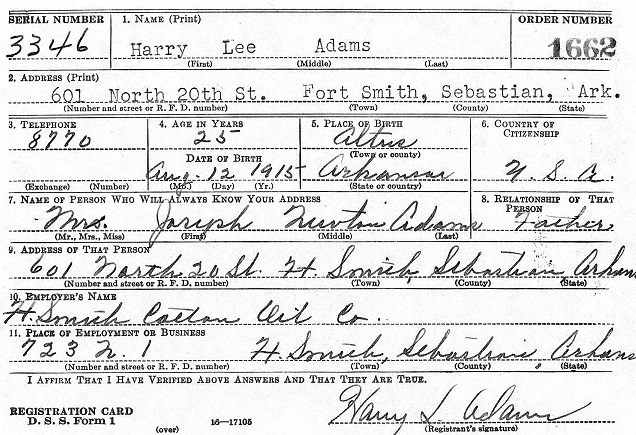 SERIAL NUMBER 1. NAME (Print) ORDER NUMBER
3346 Harry Lee Adams 1662
(First) (Middle) (Last)
2. ADDRESS (Print)
601 North 20th St. Fort Smith, Sebastian, Ark.
(Number and street or R. F. D. number) (Town) (County) (State)
3. TELEPHONE 4. AGE IN YEARS 5. PLACE OF BIRTH 6. COUNTRY OF CITIZENSHIP
8770 25 Altus
(Town or county)
DATE OF BIRTH
Aug. 12 1915 Arkansas U. S. A.
(Exchange) (Number) (Mo.) (Day) (Yr.) (State or country)
7. NAME OF PERSON WHO WILL ALWAYS KNOW YOUR ADDRESS 8. RELATIONSHIP OF THAT PERSON
Mrs. Joseph Newton Adams Father
(Mr., Mrs., Miss) (First) (Middle) (Last)
9. ADDRESS OF THAT PERSON
601 North 20 St. Ft. Smith, Sebastian, Arkans
(Number and street or R. F. D. number) (Town) (County) (State)
10. EMPLOYER'S NAME
Ft. Smith Cotton Oil Co.
11. PLACE OF EMPLOYMENT OR BUSINESS
723 N. 1 Ft. Smith, Sebastian, Arkans
(Number and street or R. F. D. number) (Town) (County) (State)
I AFFIRM THAT I HAVE VERIFIED ABOVE ANSWERS AND THAT THEY ARE TRUE.
REGISTRATION CARD
D. S. S. Form 1 (over) 16—17105 Harry L Adams
(Registrant's signature)